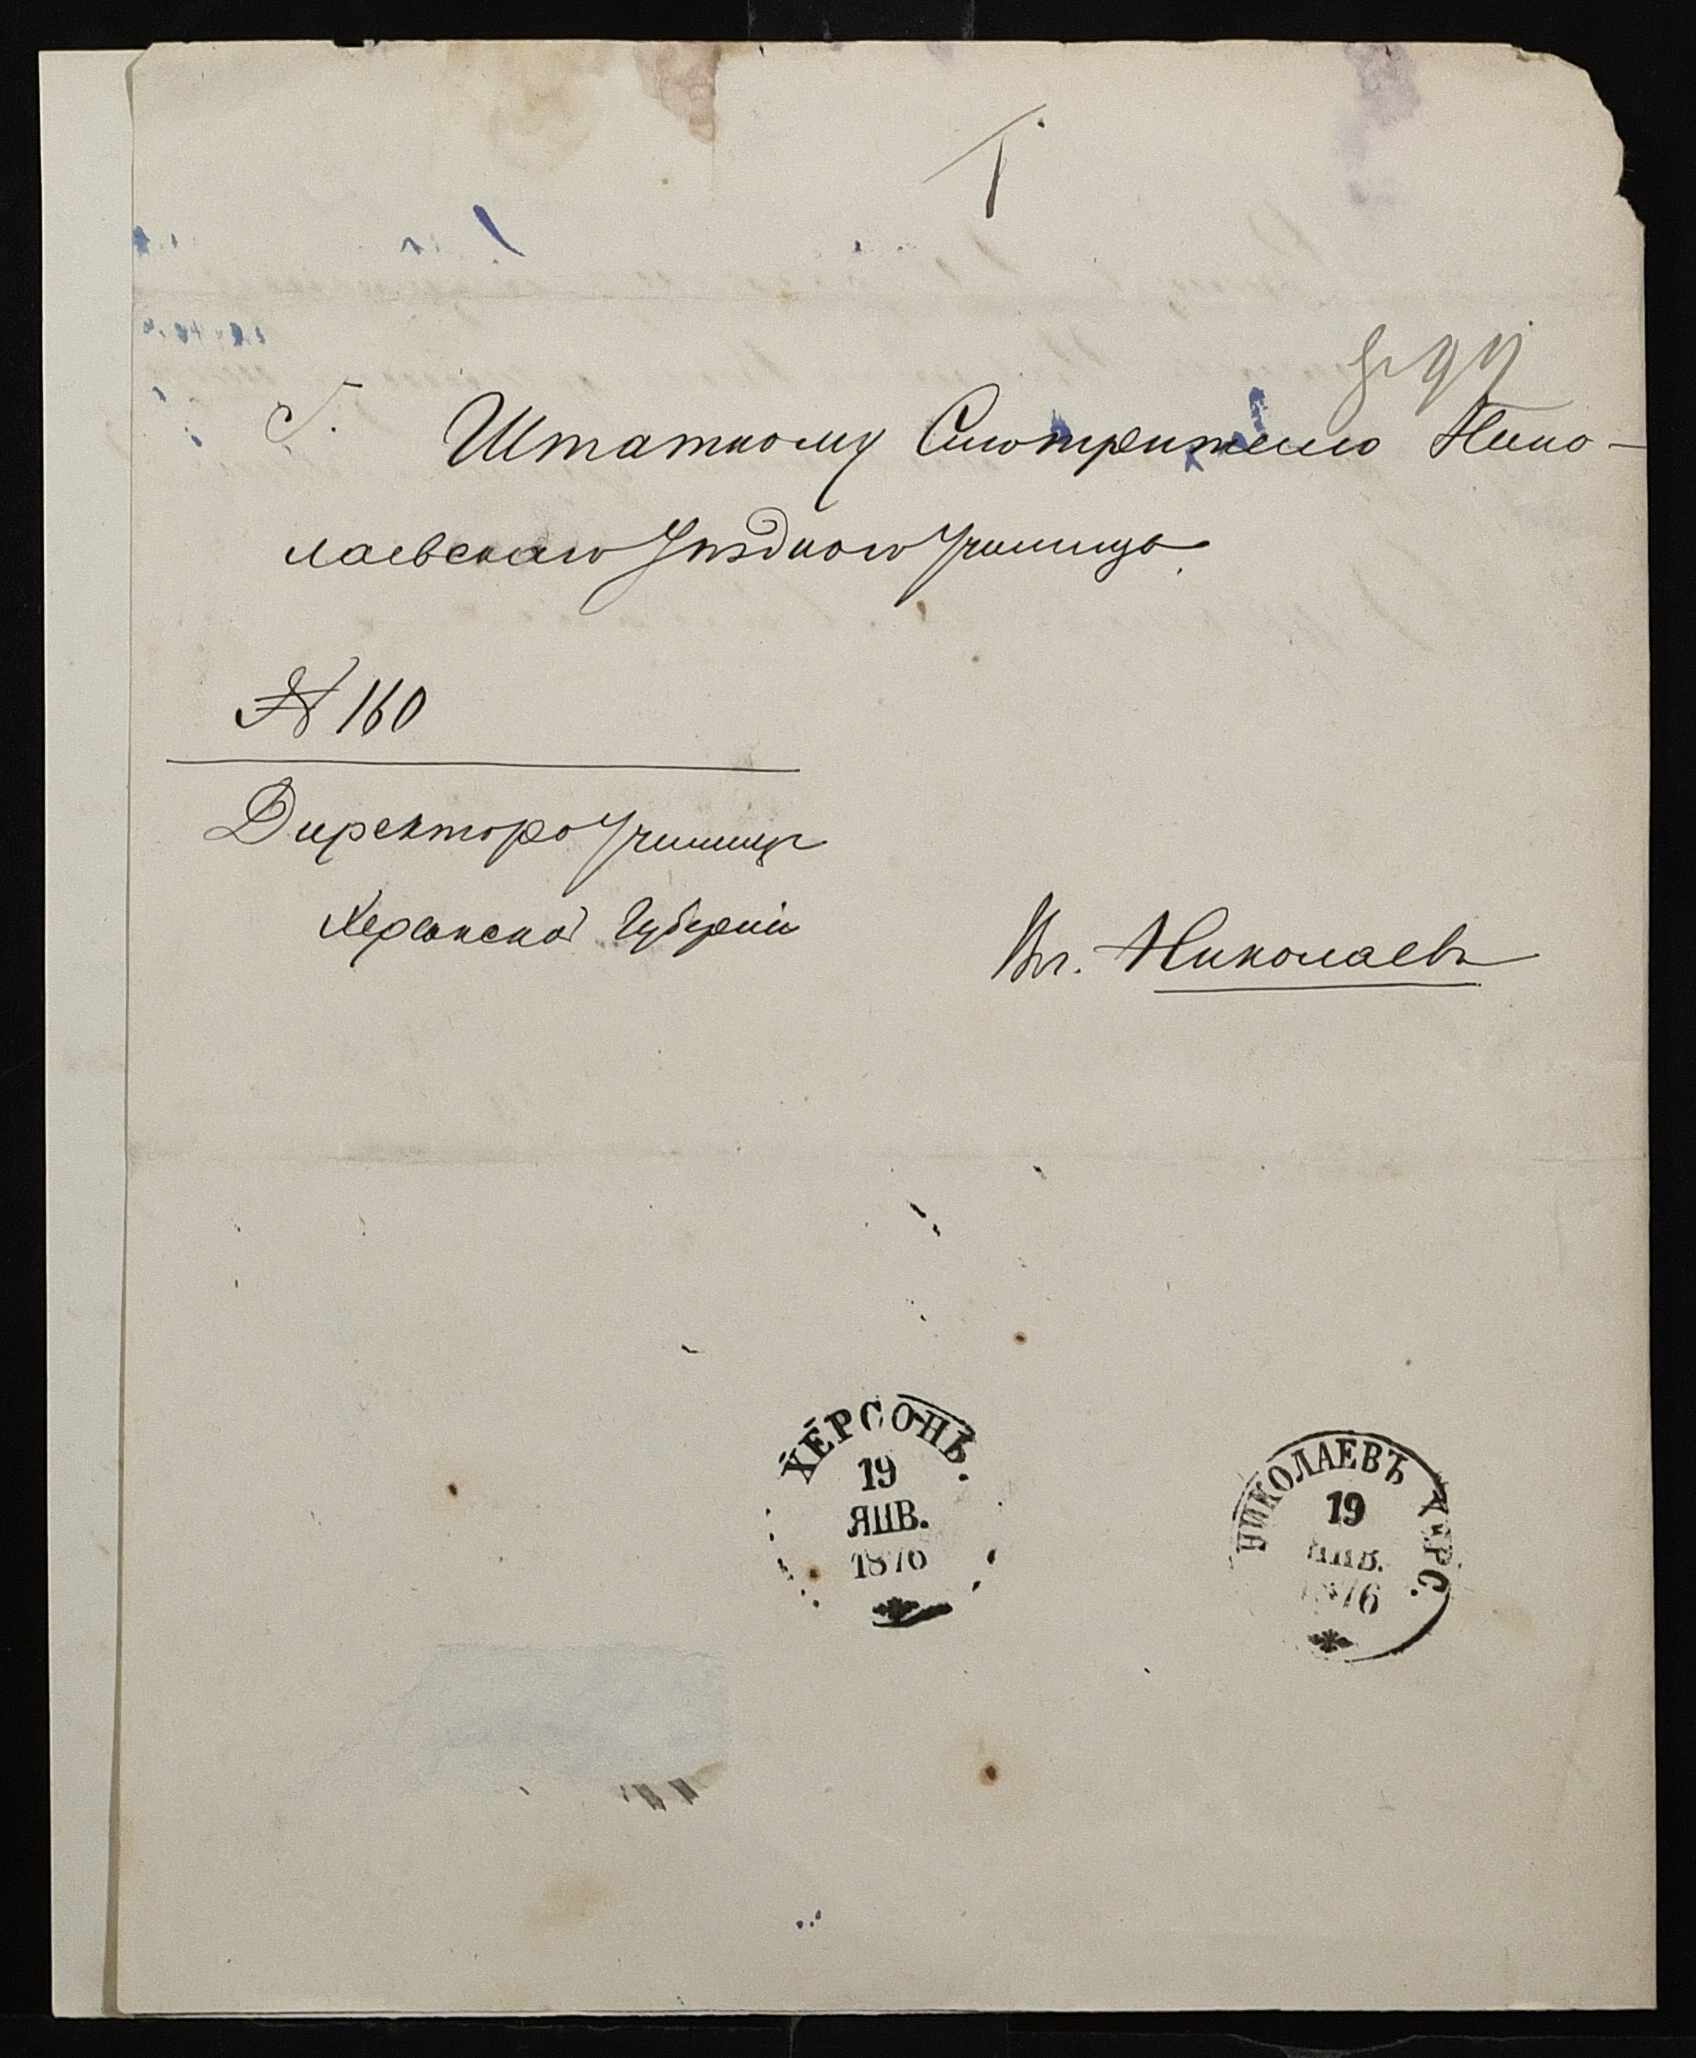 Г. Штатному Смотрителю Нико-
лаевскаго Уѣзднаго Училища.
№ 160
Директора Училищъ
Херсонской Губерніи
Въ. Николаевъ
ХЕРСОНЪ.
19
ЯНВ.
1876
НИКОЛАЕВЪ ХЕРС.
19
ЯНВ.
1876